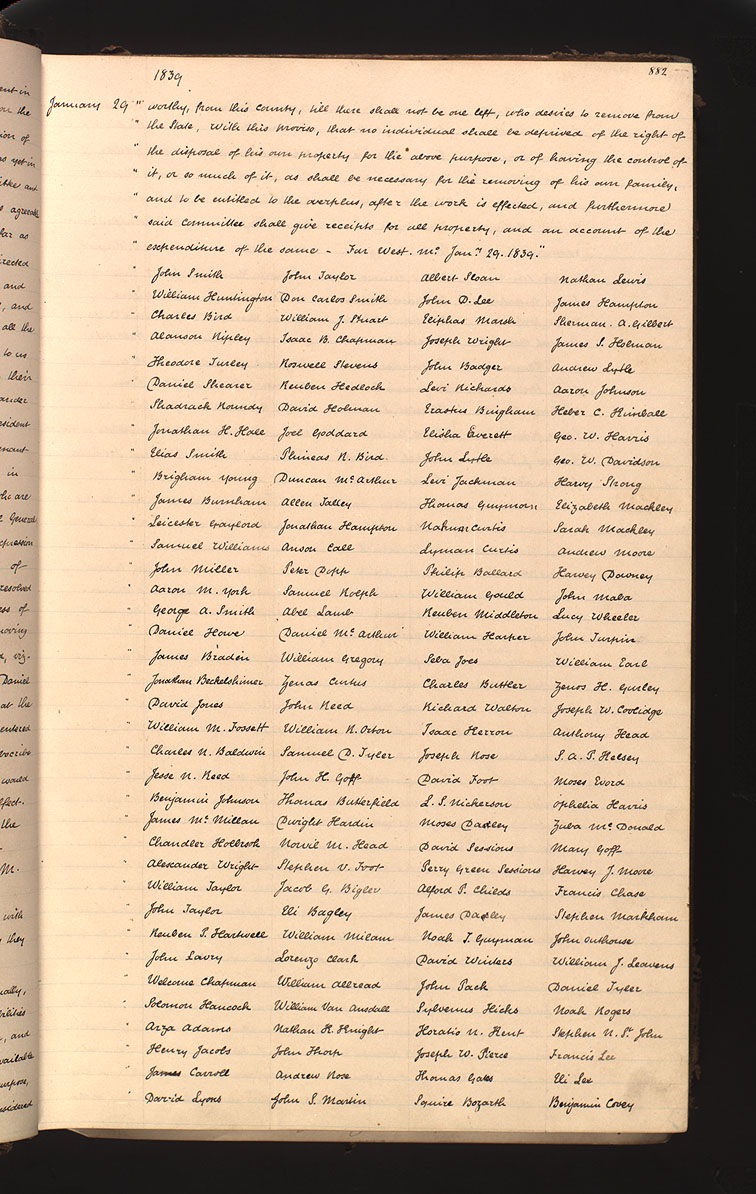 1839
882
January 29 " worthy, from this County, till there shall not be one left, who desires to remove from
" the State, With this proviso, that no individual shall be deprived of the right of
" the disposal of his own property for the above purpose, or of having the control of
" it, or so much of it, as shall be necessary for the removing of his own family,
" and to be entitled to the overplus, after the work is effected, and furthermore
" said Committee shall give receipts for all property, and an account of the
" expenditure of the same – Far West. Mo. Jany. 29. 1839."
" John Smith John Taylor Albert Sloan Nathan Lewis
" William Huntington Don Carlos Smith John D. Lee James Hampton
" Charles Bird William J. Stuart Eliphas Marsh Sherman. A. Gilbert
" Alanson Ripley Isaac B. Chapman Joseph Wright James S. Holman
" Theodore Turley Roswell Stevens John Badger Andrew Lytle
" Daniel Shearer Reuben Hedlock Levi Richards Aaron Johnson
" Shadrack Roundy David Holman Erastus Bingham Heber C. Kimball
" Jonathan H. Hale Joel Goddard Elisha Everett Geo. W. Harris
" Elias Smith Phineas R. Bird John Lytle Geo. W. Davidson
" Brigham Young Duncan McArthur Levi Jackman Harvy Strong
" James Burnham Allen Talley Thomas Guymon Elizabeth Mackley
" Leicester Gaylord Jonathan Hampton Nahum Curtis Sarah Mackley
" Samuel Williams Anson Call Lyman Curtis Andrew Moore
" John Miller Peter Dopp Philip Ballard Harvey Downey
" Aaron M. York Samuel Rolph William Gould John Maba
" George A. Smith Abel Lamb Reuben Middleton Lucy Wheeler
" Daniel Howe Daniel McArthur William Harper John Turpin
" James Braden William Gregory Seba Joes William Earl
" Jonathan Beckelshimer Zenas Curtis Charles Buttler Zenos H. Gurley
" David Jones John Reed Richard Walton Joseph W. Coolidge
" William M. Fossett William R. Orton Isaac Herron Anthony Head
" Charles N. Baldwin Samuel D. Tyler Joseph Rose S. A. P. Kelsey
" Jesse N. Reed John H. Goff David Foot Moses Evord
" Benjamin Johnson Thomas Butterfield L. S. Nickerson Ophelia Harris
" James McMillan Dwight Hardin Moses Daxley Zuba McDonald
" Chandler Holbrook Norvil M. Head David Sessions Mary Goff
" Alexander Wright Stephen V. Foot Perry Green Sessions Harvey J. Moore
" William Taylor Jacob G. Bigler Alford P. Childs Francis Chase
" John Taylor Eli Bagley James Daxley Stephen Markham
" Reuben P. Hartwell William Milam Noah T. Guyman John Outhouse
" John Lowry Lorenzo Clark David Winters William J. Leavens
" Welcome Chapman William Allread John Pack Daniel Tyler
" Solomon Hancock William Van Ausdall Sylvenus Hicks Noah Rogers
" Arza Adams Nathan K. Knight Horatio N. Kent Stephen N. St. John
" Henry Jacobs John Thorp Joseph W. Pierce Francis Lee
" James Carroll Andrew Rose Thomas Gates Eli Lee
" David Lyons John S. Martin Squire Bozarth Benjamin Covey